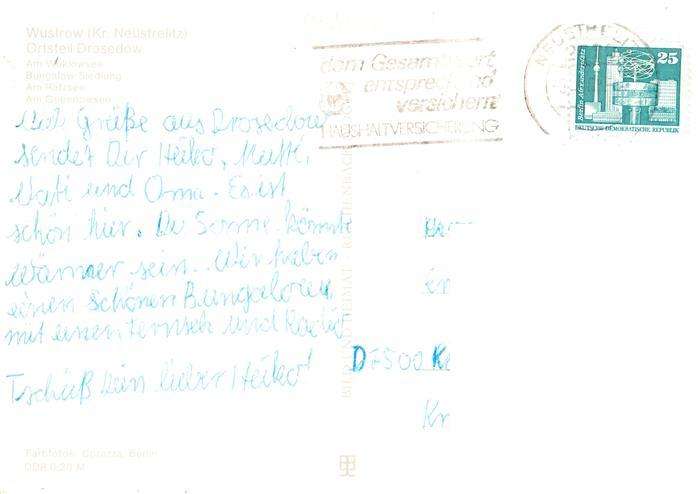 Wustrow (Kr. Neustrelitz)
Ortsteil Drosedow
Am Wolklowsee
Bungalow-Siedlung
Am Rätzsee
Am
dem Gesamtwert
entsprechend
versichern!
HAUSHALTVERSICHERUNG
NEUSTRELITZ
25
Berlin, Alexanderplatz
DEUTSCHE DEMOKRATISCHE REPUBLIK
Grüße aus Drosedow
sendet Dir Heiko, Mutti,
Vati und Oma. Es ist
schön hier. Die Sonne könnte
wärmer sein. Wir haben
einen schönen Bungalow
mit einen Fernseh und Radio
Tschüß Dein lieber Heiko!
in
D7500
Kr
BILD UND HEIMAT REICHENBACH
Farbfotos: Corazza, Berlin
DDR 0,20 M